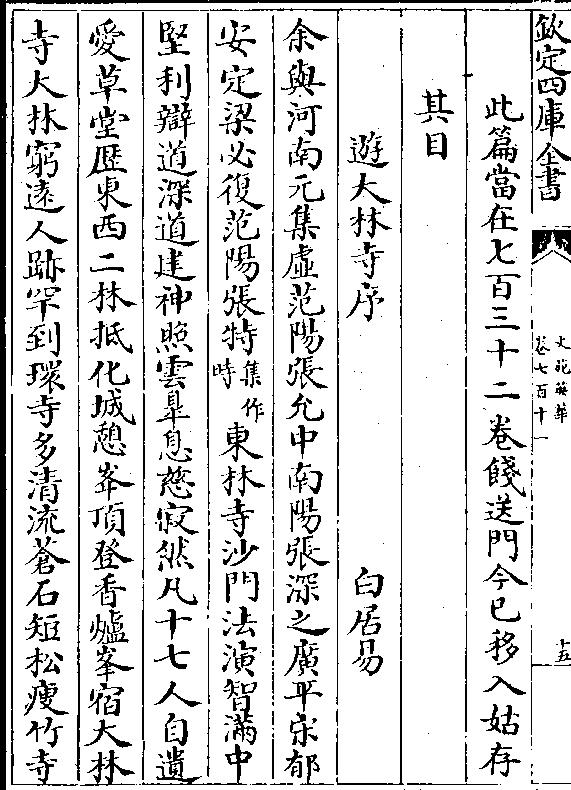 欽定四庫全書
文苑英華
卷七百十一
十五
此篇當在七百三十二卷餞送門今已移入姑存
其目
遊大林寺序 白居易
余與河南元集虛范陽張允中南陽張深之廣平宋郁
安定梁必復范陽張特集作時東林寺沙門法演智滿中
堅利辯道深道建神照雲臯息慈寂然凡十七人自遺
愛草堂歷東西二林抵化城憩峯頂登香爐峯宿大林
寺大林窮遠人跡罕到環寺多清流蒼石短松瘦竹寺